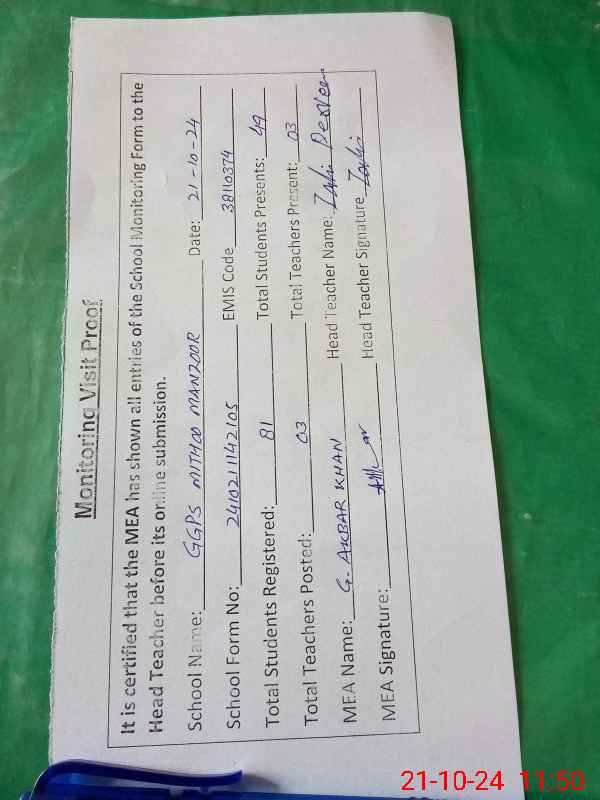 Monitoring Visit Proof
It is certified that the MEA has shown all entries of the School Monitoring Form to the
Head Teacher before its online submission.
School Name: GGPS MITHOO MANZOOR Date: 21-10-24
School Form No: 2410211142105 EMIS Code 38110374
Total Students Registered: 81 Total Students Presents: 49
Total Teachers Posted: 03 Total Teachers Present: 03
MEA Name: G. AKBAR KHAN Head Teacher Name:
MEA Signature: Head Teacher Signature
21-10-24 11:50